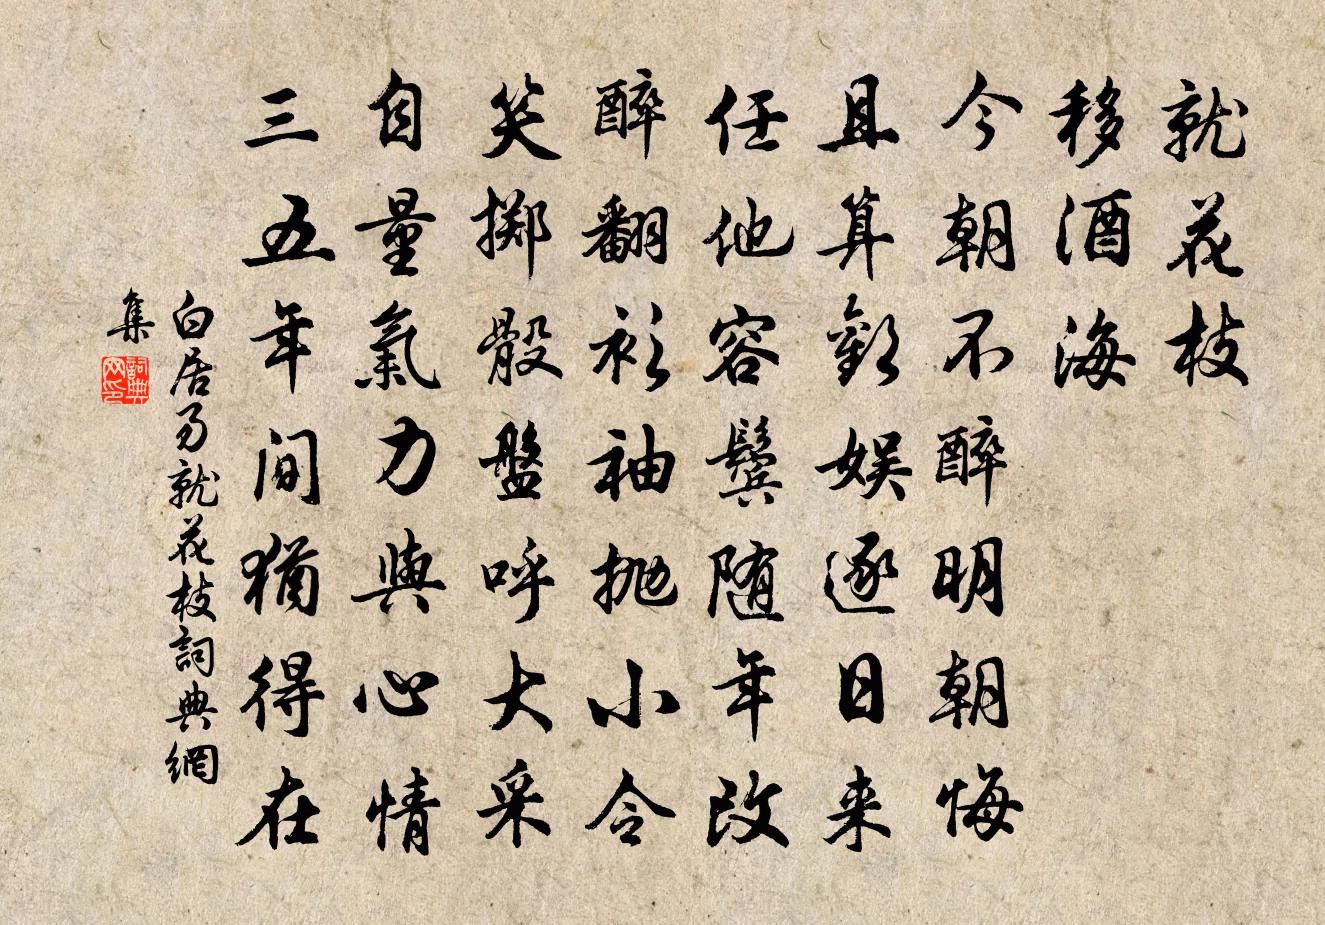 就花枝
移酒海
今朝不醉明朝悔
且算歡娛逐日来
任他容鬢随年改
醉翻衫袖抛小令
笑擲骰盤呼大采
自量氣力與心情
三五年間猶得在
白居易就花枝詞典網
集
詞典
网印